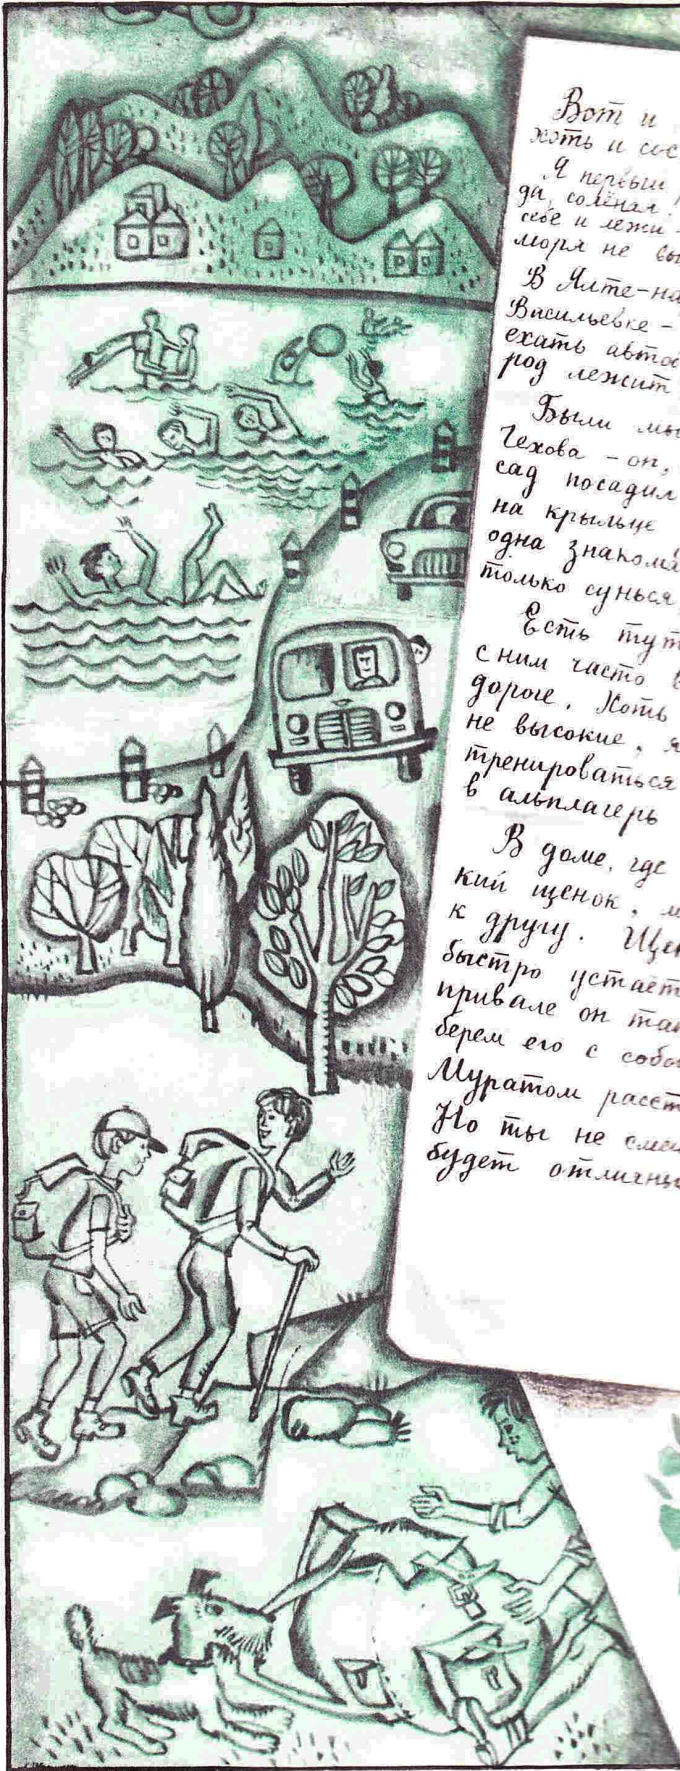 Вот и
хоть и сос
Я первый
да, солёная.
себе и лежи -
моря не вы
В Ялте-на
Васильевке -
ехать автоб
род лежит
Были мы
Чехова - он,
сад посадил
на крыльце
одна знакома
только сунься,
Есть тут
с ним часто в
дороге. Хоть
не высокие, я
тренироваться
в альплагерь
В доме, где
кий щенок, м
к другу. Щен
быстро устаёт
привале он так
берем его с собо
Муратом расст
Но ты не смей
будет отличны